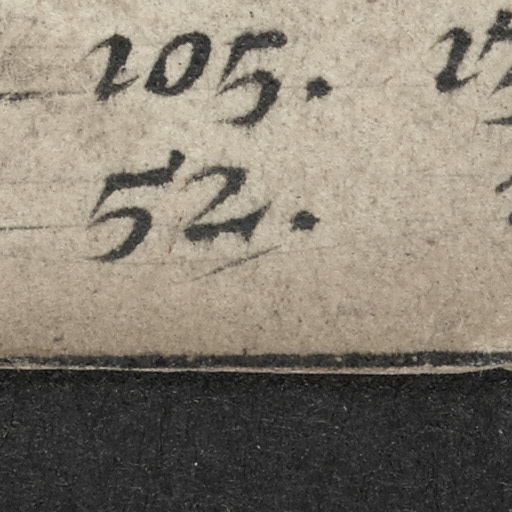 105.
52.